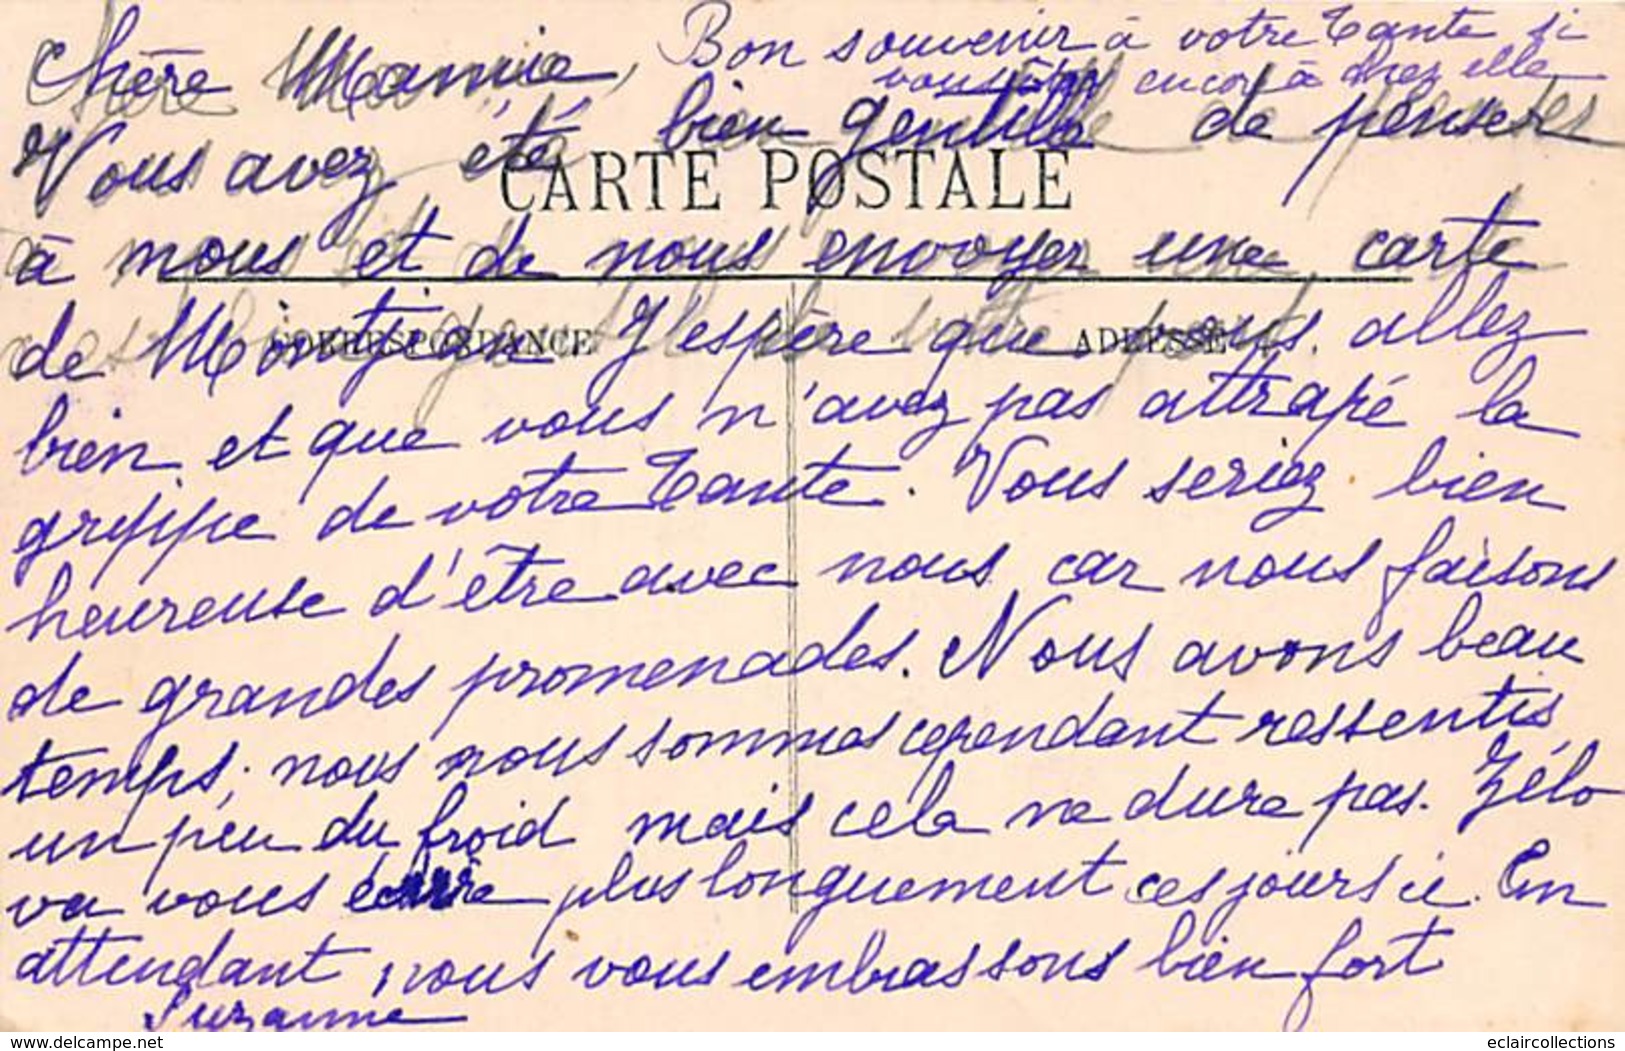 Chère Mamie, Bon souvenir à votre Tante si
vous êtes encor à chez elle
Vous avez été bien gentille de penser
CARTE POSTALE
à nous et de nous envoyer une carte
CORRESPONDANCE
ADRESSE
de J'espère que vous allez
bien et que vous n'avez pas attrapé la
grippe de votre Tante. Vous seriez bien
heureuse d'être avec nous car nous faisons
de grandes promenades. Nous avons beau
temps; nous nous sommes cependant ressentis
un peu du froid mais cela ne dure pas. Zélo
va vous écrire plus longuement ces jours ci. En
attendant, nous vous embrassons bien fort
Suzanne
www.delcampe.net
eclaircollections